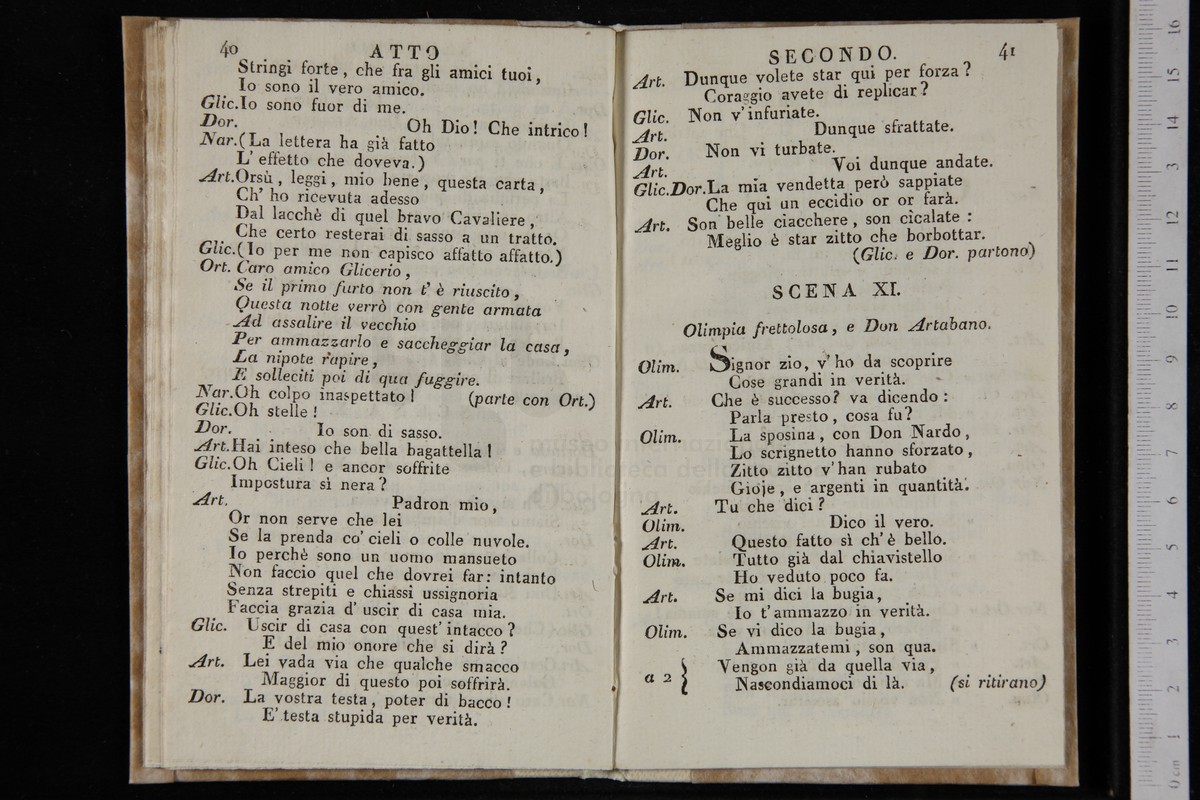 40 ATTO
Stringi forte, che fra gli amici tuoi,
Io sono il vero amico.
Glic.Io sono fuor di me.
Dor. Oh Dio! Che intrico!
Nar.(La lettera ha già fatto
L' effetto che doveva.)
Art.Orsù, leggi, mio bene, questa carta,
Ch' ho ricevuta adesso
Dal lacchè di quel bravo Cavaliere,
Che certo resterai di sasso a un tratto.
Glic.(Io per me non capisco affatto affatto.)
Ort. Caro amico Glicerio,
Se il primo furto non t' è riuscito,
Questa notte verrò con gente armata
Ad assalire il vecchio
Per ammazzarlo e saccheggiar la casa,
La nipote rapire,
E solleciti poi di qua fuggire.
Nar.Oh colpo inaspettato! (parte con Ort.)
Glic.Oh stelle!
Dor. Io son di sasso.
Art.Hai inteso che bella bagattella!
Glic.Oh Cieli! e ancor soffrite
Impostura sì nera?
Art. Padron mio,
Or non serve che lei
Se la prenda co' cieli o colle nuvole.
Io perchè sono un uomo mansueto
Non faccio quel che dovrei far: intanto
Senza strepiti e chiassi ussignoria
Faccia grazia d' uscir di casa mia.
Glic. Uscir di casa con quest' intacco?
E del mio onore che si dirà?
Art. Lei vada via che qualche smacco
Maggior di questo poi soffrirà.
Dor. La vostra testa, poter di bacco!
E' testa stupida per verità.
SECONDO. 41
Art. Dunque volete star qui per forza?
Coraggio avete di replicar?
Glic. Non v' infuriate.
Art. Dunque sfrattate.
Dor. Non vi turbate.
Art. Voi dunque andate.
Glic.Dor.La mia vendetta però sappiate
Che qui un eccidio or or farà.
Art. Son belle ciacchere, son cicalate:
Meglio è star zitto che borbottar.
(Glic. e Dor. partono)
SCENA XI.
Olimpia frettolosa, e Don Artabano.
Olim. Signor zio, v' ho da scoprire
Cose grandi in verità.
Art. Che è successo? va dicendo:
Parla presto, cosa fu?
Olim. La sposina, con Don Nardo,
Lo scrignetto hanno sforzato,
Zitto zitto v' han rubato
Gioje, e argenti in quantità.
Art. Tu che dici?
Olim. Dico il vero.
Art. Questo fatto sì ch' è bello.
Olim. Tutto già dal chiavistello
Ho veduto poco fa.
Art. Se mi dici la bugia,
Io t' ammazzo in verità.
Olim. Se vi dico la bugia,
Ammazzatemi, son qua.
a 2 { Vengon già da quella via,
Nascondiamoci di là. (si ritirano)